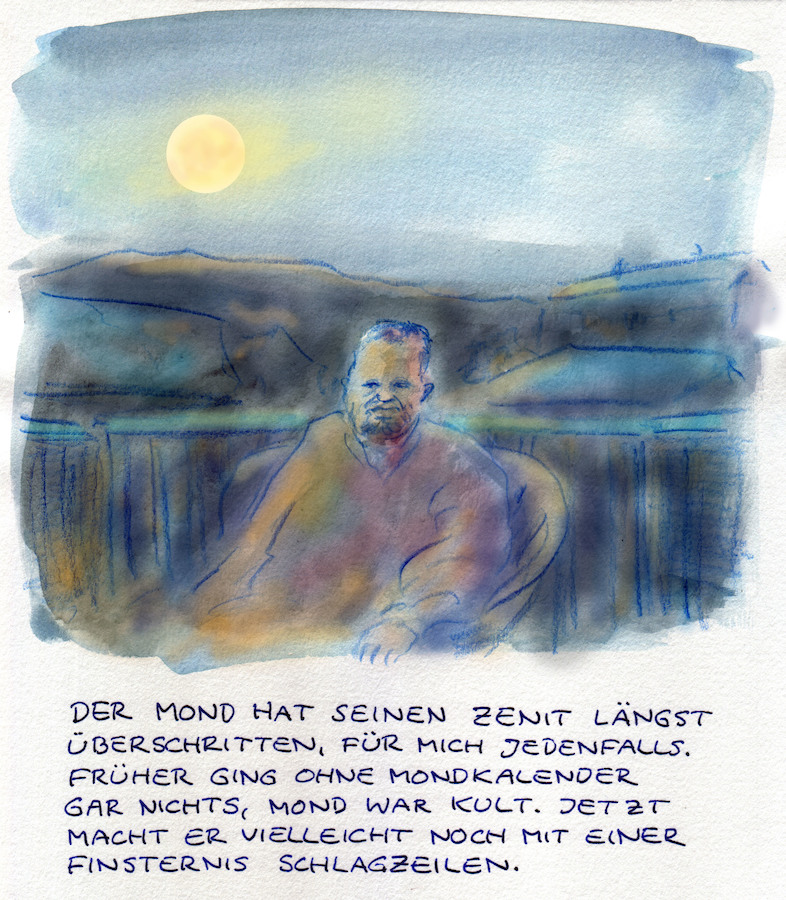 DER MOND HAT SEINEN ZENIT LÄNGST
ÜBERSCHRITTEN, FÜR MICH JEDENFALLS.
FRÜHER GING OHNE MONDKALENDER
GAR NICHTS, MOND WAR KULT. JETZT
MACHT ER VIELLEICHT NOCH MIT EINER
FINSTERNIS SCHLAGZEILEN.